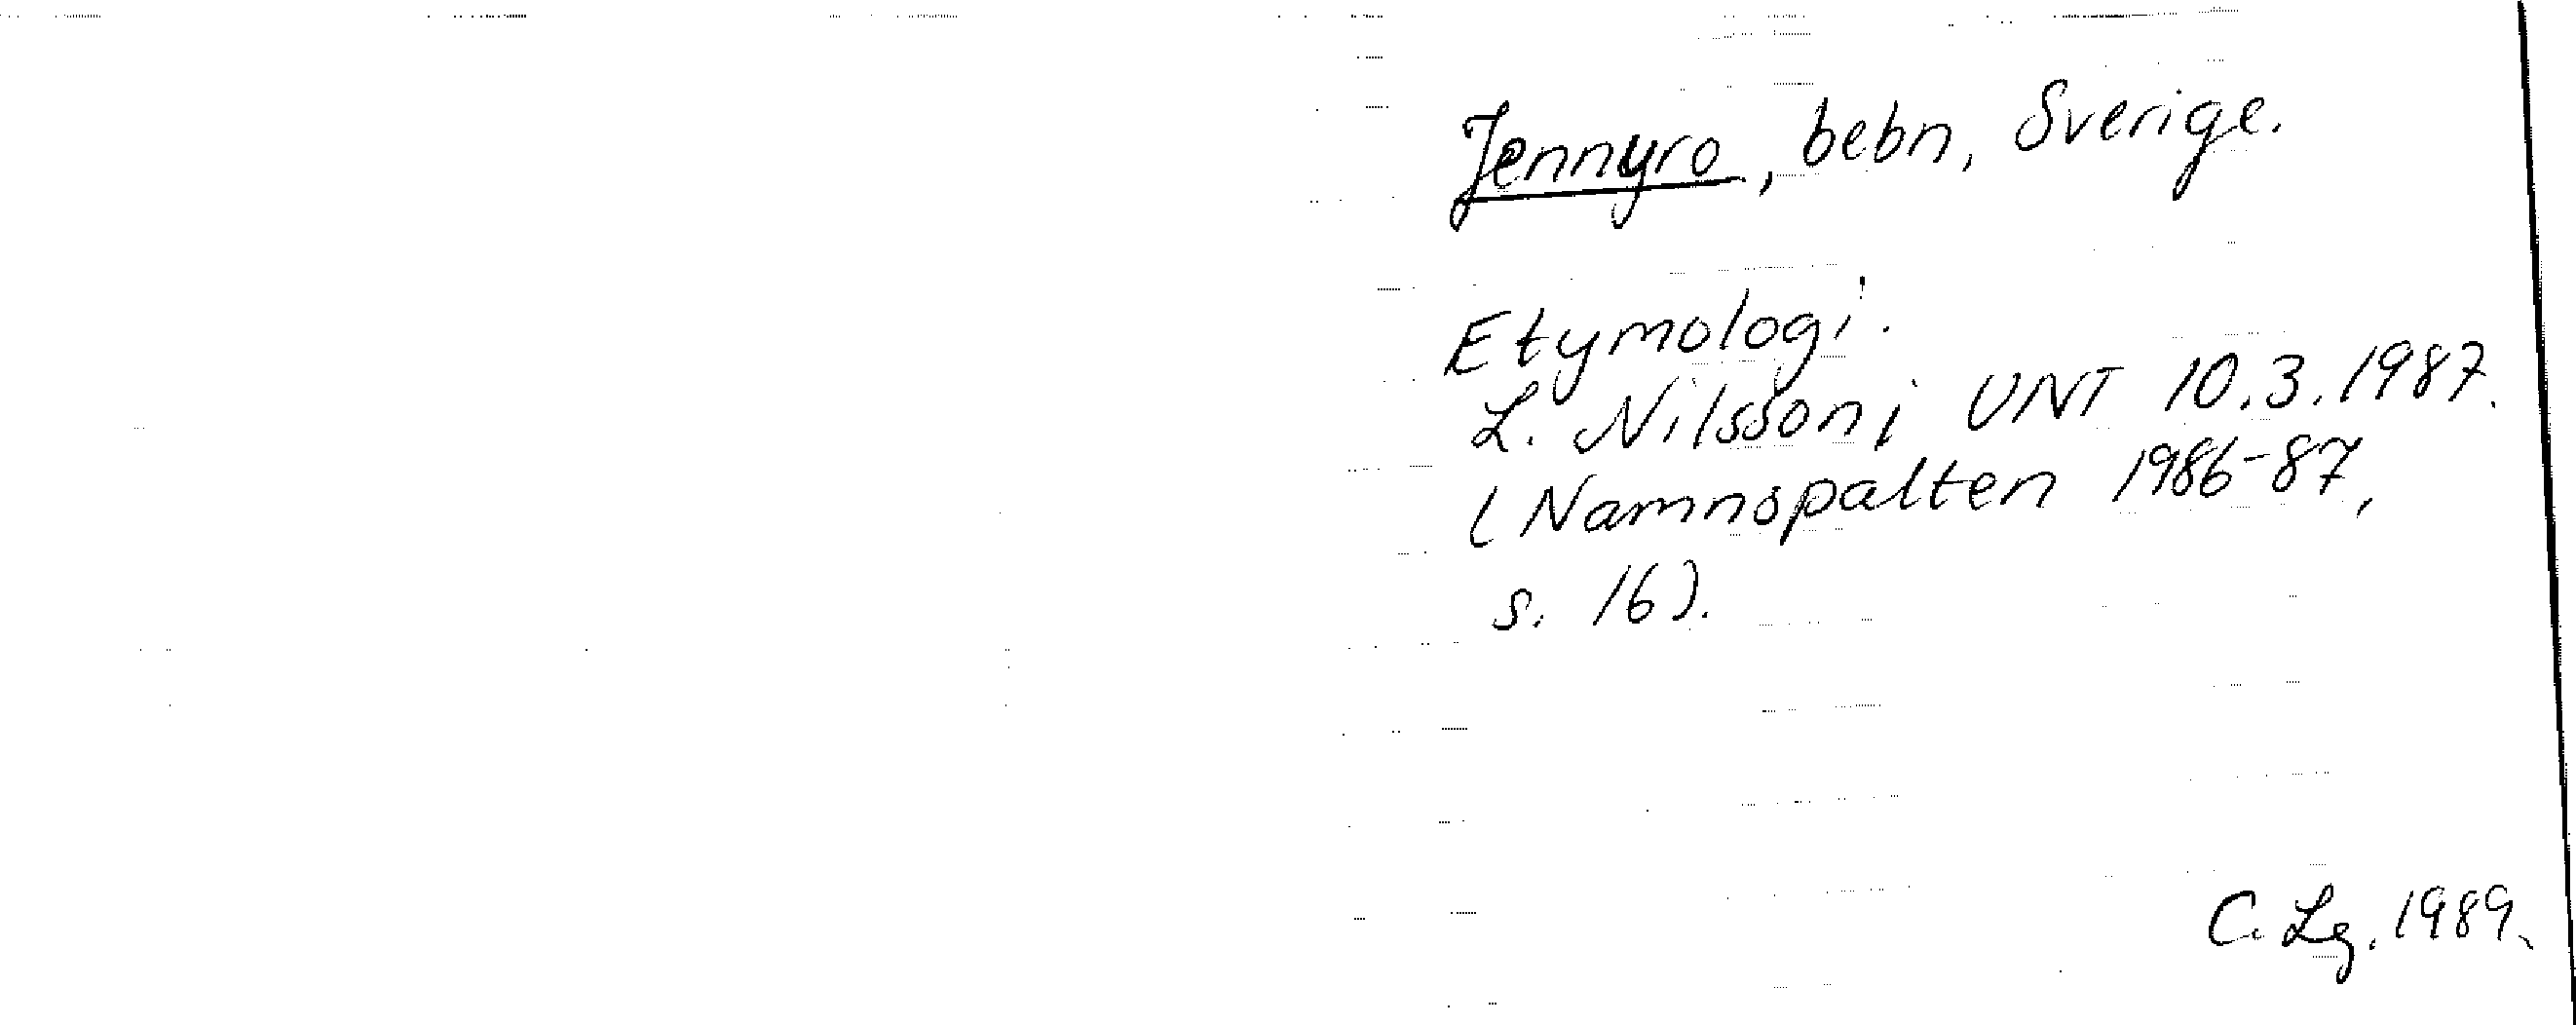 Jennyro, bebn, Sverige.
Etymologi.
L. Nilsson i UNT 10.3.1987.
(Namnspalten 1986-87,
s. 16).
C. Lg. 1989.